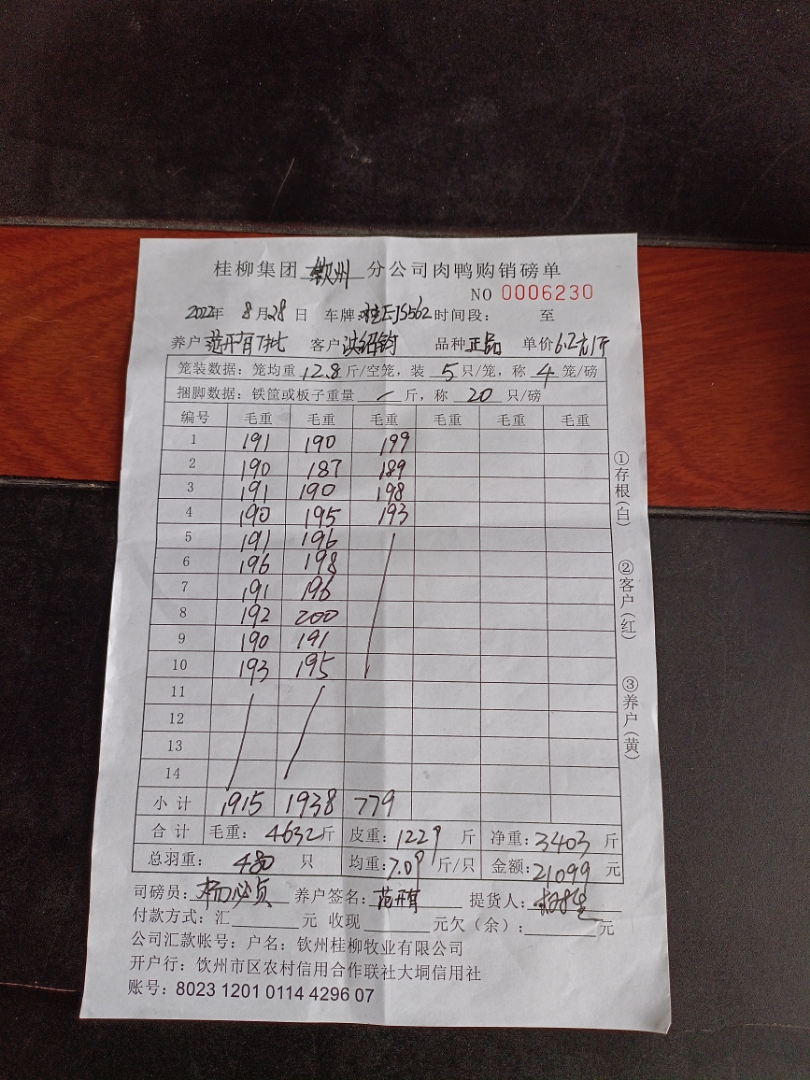 桂柳集团 钦州 分公司肉鸭购销磅单
NO 0006230
2022年 8月28日 车牌:桂EJS562 时间段: 至
养户 范开有7批 客户 洪绍钧 品种 正品 单价 6.2元/斤
笼装数据:笼均重 12.8 斤/空笼,装 5 只/笼,称 4 笼/磅
捆脚数据:铁筐或板子重量 / 斤,称 20 只/磅
编号 毛重 毛重 毛重 毛重 毛重 毛重
1 191 190 199
2 190 187 189
3 191 190 198
4 190 195 193
5 191 196
6 196 198
7 191 196
8 192 200
9 190 191
10 193 195
11
12
13
14
小计 1915 1938 779
合计 毛重: 4632斤 皮重: 1229 斤 净重: 3403 斤
总羽重: 480 只 均重: 7.09 斤/只 金额: 21099 元
司磅员: 养户签名: 范开有 提货人:
付款方式:汇 元 收现 元欠(余): 元
公司汇款帐号:户名:钦州桂柳牧业有限公司
开户行:钦州市区农村信用合作联社大垌信用社
账号:8023 1201 0114 4296 07
①存根(白)
②客户(红)
③养户(黄)